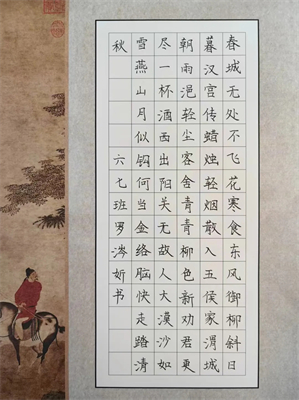 春城无处不飞花寒食东风御柳斜日
暮汉宫传蜡烛轻烟散入五侯家渭城
朝雨浥轻尘客舍青青柳色新劝君更
尽一杯酒西出阳关无故人大漠沙如
雪燕山月似钩何当金络脑快走踏清
秋 六七班罗涔妡书